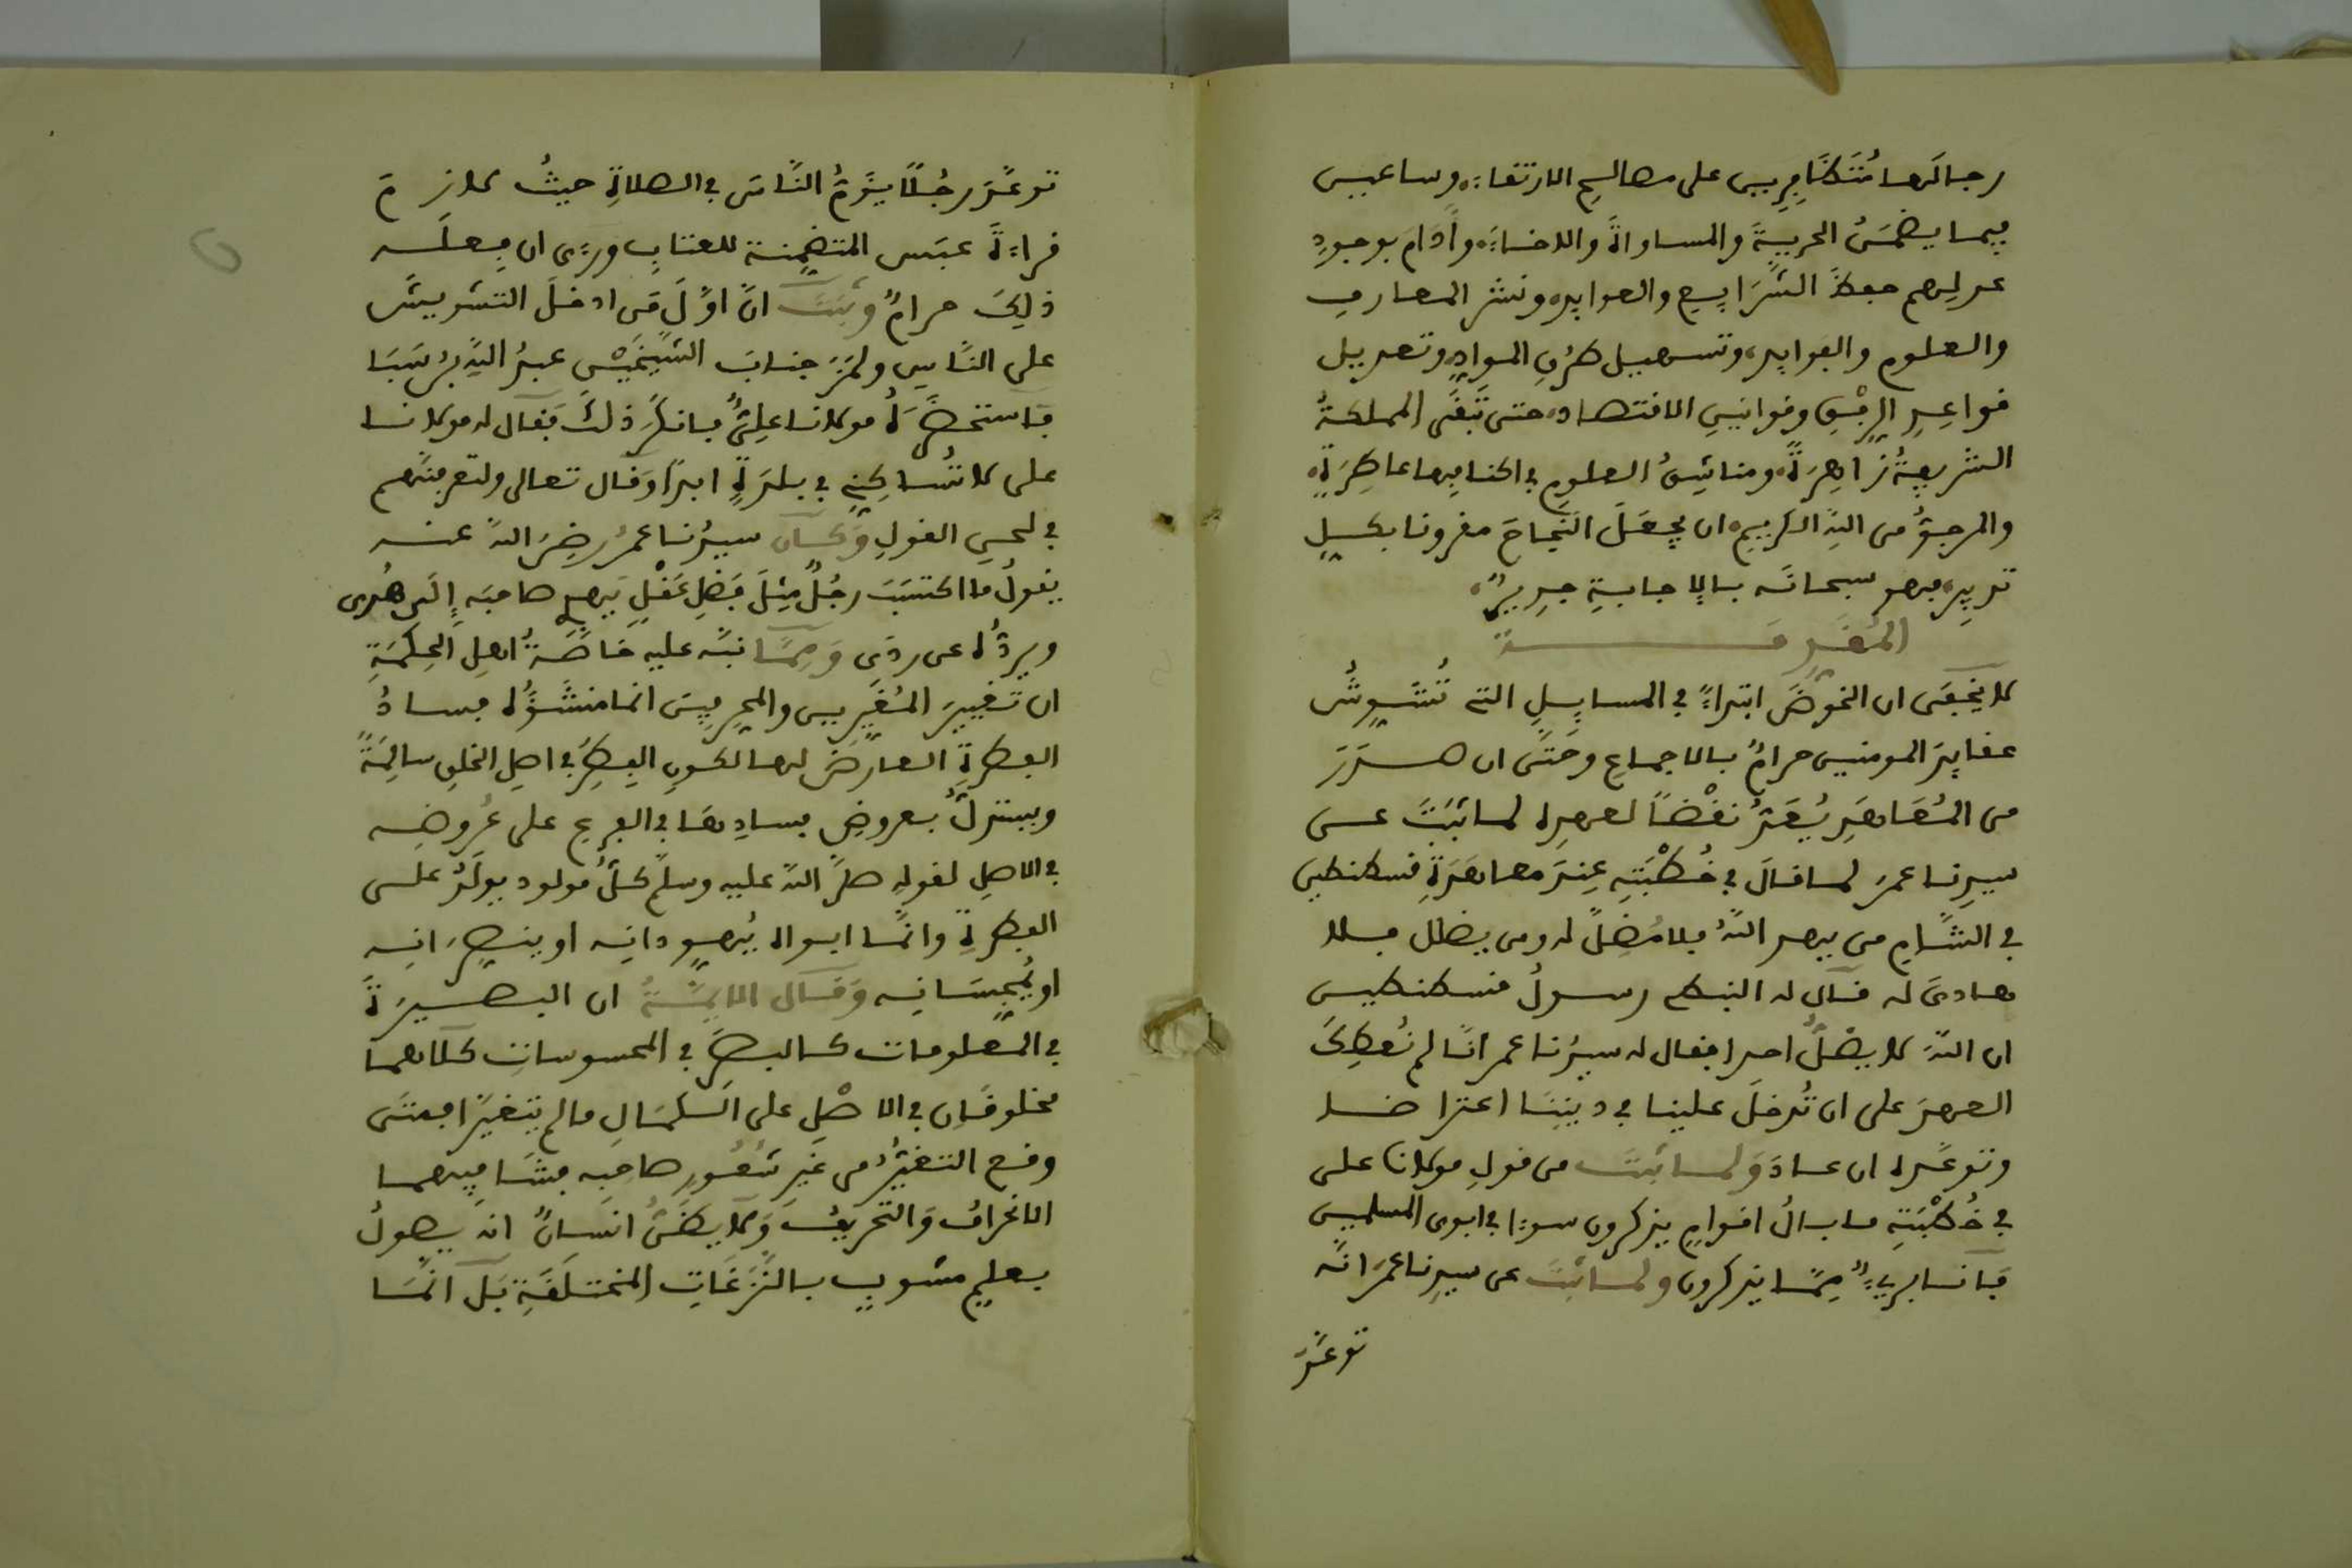 رجالَها مُتَظَافِرِين على مصالحِ الارتقاء، وساعين
فيما يضمَنُ الحريةَ والمساواةَ والاخاءَ، وأدامَ بوجودِ
عدلِهم حفظَ الشَّرَايِعِ والعوايد، ونشرَ المعارف
والعلومِ والفوايد، وتسهيلَ طرُقِ المواد، وتعديل
قواعِدِ الرِّفْقِ وقوانينِ الاقتصاد، حتى تَبقَى المملكةُ
الشريفةُ زاهِرَةً، ومناشِقُ العلومِ في اكنافِها عاطِرَةً،
والمرجوُّ من اللهِ الكريمِ، ان يجعَلَ النَّجاحَ مقرونا بكلِّ
تدبِيرٍ، فهو سبحانَه بالاجابةِ جدِيرٌ،
المُقَدِّمَــــــةُ
لا يخفَى ان الخوْضَ ابتداءً في المسايِلِ التي تُشَوِّشُ
عقايِدَ المومنين حرامٌ بالاجماعِ وحَتَّى ان صدَرَ
من المُعَاهَدِ يُعَدُّ نقْضاً لعهدِه لما ثبَتَ عن
سيدِنا عمرَ لما قالَ في خُطْبَتِه عِندَ معاهَدَةِ قسطنطين
في الشَّامِ من يهد اللهُ فلا مُضِلَّ له ومن يضلل فلا
هادىَ له قال له النبطي رسولُ قسطنطين
ان اللهَ لا يضلُّ احدا فقال له سيدُنا عمر انَّا لم نُعطِكَ
العهدَ على ان تُدخلَ علينا في دينِنَا اعتراضا
وتوعَّده ان عادَ وَلما ثبتَ من قولِ مولانا على
في خُطْبَتِهِ ما بالُ اقوامٍ يذكرون سوءا في ابوى المسلمين
فَانا برىءٌ مِمَّا يذكرون ولما ثبتَ عن سيدِنا عمرَ انَّه
توعَّدَ
توعَّدَ رجُلاً يؤمُّ النَّاسَ في الصلاةِ حيثُ لازمَ
قراءةَ عبَس المتضمِنة للعتابِ ورءَى ان فِعلَه
ذلِكَ حرامٌ وثبتَ انَّ اوَّلَ مَن ادخلَ التشويشَ
على النَّاسِ ولمَزَ جنابَ الشيخَيْن عبدُ اللهِ بنُ سَبَا
فَاستحضَرَهُ مولانا علِيٌّ فانكَرَ ذلكَ فقال له مولانا
على لا تُساكِنِّي في بلدَةٍ ابداً وقال تعالى ولتعرفنَّهم
في لحنِ القولِ وَكان سيدُنا عمرُ رضِىَ اللهُ عنه
يقولُ ما اكتسَبَ رجُلٌ مِثلَ فَضلِ عَقْلٍ يَهدِي صاحبَه إلَى هُدى
ويردُّه عن ردَى وَمِمَّا نبَّه عليه خاصَّةُ اهلِ الحِكمَةِ
ان تغييرَ المُغَيِّرين والمحرِّفِينَ انما منشَؤُه فسادُ
الفطرةِ العارِضُ لها لكونِ الفِطَرِ في اصلِ الخلقِ سالِمَةً
ويستدلُّ بعروضِ فسادِها في الفرعِ على عُرُوضِه
في الاصلِ لقولِهِ صلَّى اللهُ عليه وسلَّم كلُّ مولود يولَدُ على
الفطرةِ وانَّما ابواه يُهوِّدانِه او ينصِّرَانِه
او يُمجِّسَانِه وَقال الايمَّةُ ان البصيرَةَ
في المعلوماتِ كالبصَرِ في المحسوساتِ كلاهما
مخلوقَانِ في الاصْلِ على الكمَالِ ما لم يتغيَّرَا فمتَى
وقع التغيُّرُ من غيرِ شُعُورِ صاحبِه فشَا فيهما
الانحرافُ وَالتحريفُ وَلا يظنُّ انسانٌ انه يصولُ
بعلمٍ مشوبٍ بالنَّزَغَاتِ المختلَقَةِ بَل انَّمَا